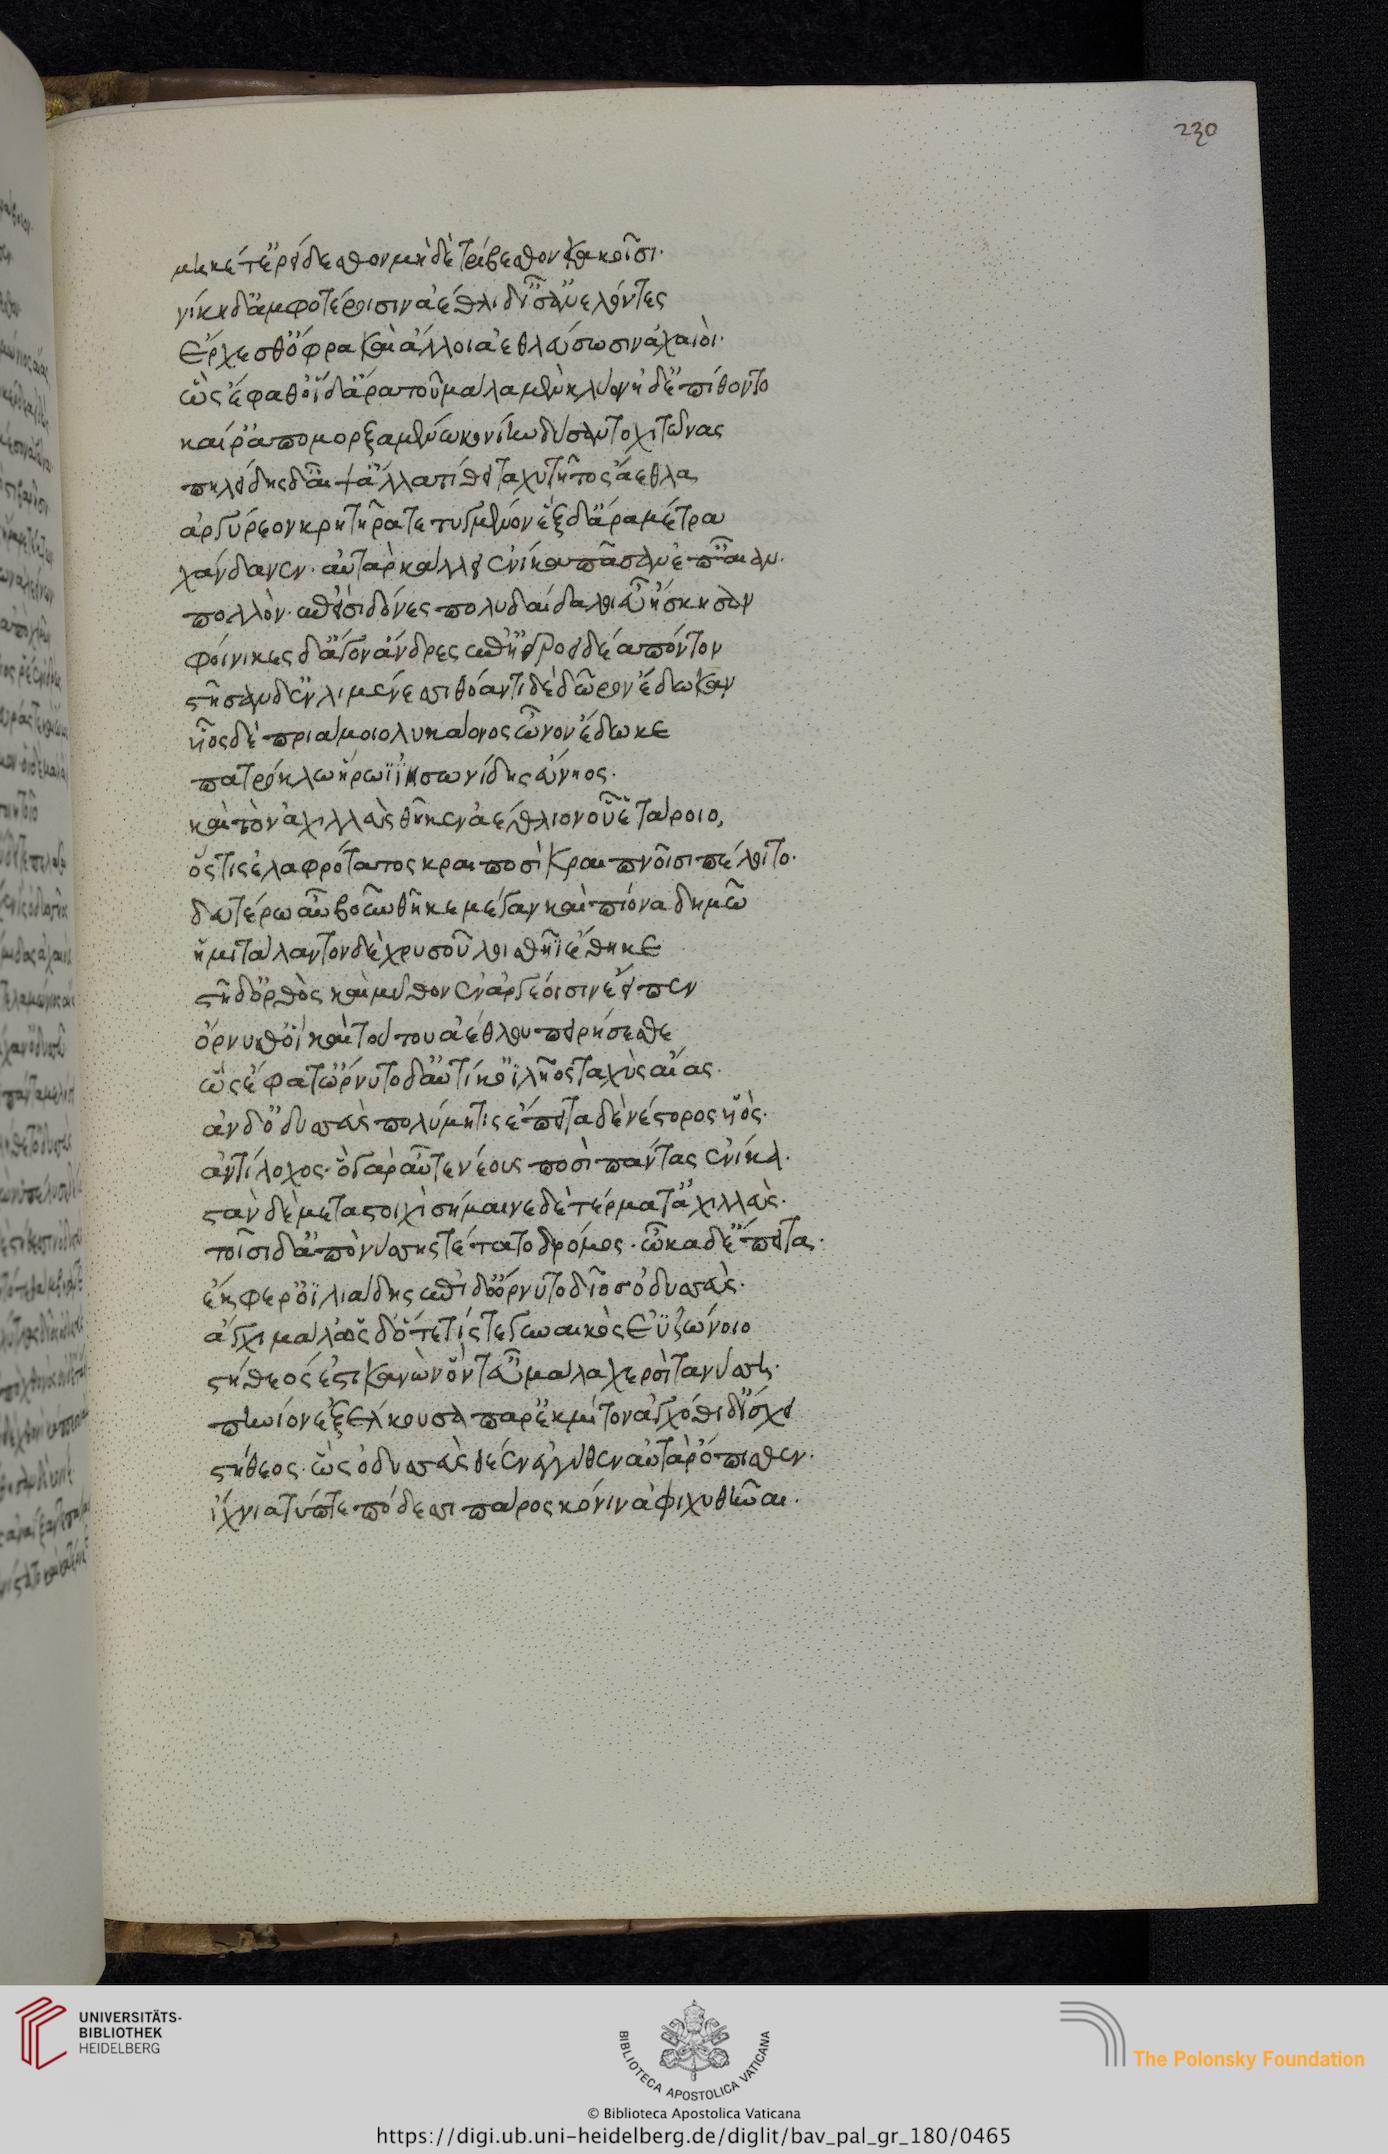 230
μηκέτ' ἐρείδεσθον μὴ δὲ τρίβεσθον κακοῖσι·
νίκη δ' ἀμφοτέροισιν ἀέθλια δ' ἶσ' ἀνελόντες
ἔρχεσθ' ὄφρα καὶ ἄλλοι ἀεθλεύσωσιν ἀχαιοί·
ὣς ἔφαθ' οἵ δ' ἄρα τοῦ μάλα μὲν κλύον ἠδ' ἐπίθοντο
καί ῥ' ἀπομορξαμένω κονίην δύσαντο χιτῶνας
πηλείδης δ' αἶψ' ἄλλα τίθει ταχυτῆτος ἄεθλα
ἀργύρεον κρητῆρα τετυγμένον ἓξ δ' ἄρα μέτρα
χάνδανεν· αὐτὰρ κάλλει ἐνίκα πᾶσαν ἐπ' αἶαν·
πολλὸν· ἐπεὶ σιδόνες πολυδαίδαλοι εὖ ἤσκησαν
φοίνικες δ' ἄγον ἄνδρες ἐπ' ἠεροειδέα πόντον
στῆσαν δ' ἐν λιμένεσσι θόαντι δὲ δῶρον ἔδωκαν
υἷος δὲ πριάμοιο λυκάονος ὦνον ἔδωκε
πατρόκλω ἥρωϊ ἰησονίδης εὔνηος·
καὶ τὸν ἀχιλλεὺς θῆκεν ἀέθλιον οὗ ἑτάροιο,
ὅς τις ἐλαφρότατος κραιποσὶ κραιπνοῖσι πέλοιτο·
δευτέρω αὖ βοῦν θῆκε μέγαν καὶ πίονα δημῶ
ἡμιτάλαντον δὲ χρυσοῦ λοισθῆϊ ἔθηκε
στῆ δ' ὀρθὸς καὶ μῦθον ἐν ἀργείοισιν ἔειπεν
ὄρνυσθ' οἳ καὶ τούτου ἀέθλου πειρήσεσθε
ὣς ἔφατ' ὤρνυτο δ' αὐτίκ' ὀϊλῆος ταχὺς αἴας·
ἂν δ' ὀδυσσεὺς πολύμητις ἔπειτα δὲ νέστορος υἱὸς·
ἀντίλοχος· ὃ γὰρ αὖτε νέους ποσὶ πάντας ἐνίκα·
στὰν δὲ μεταστοιχὶ σήμαινε δὲ τέρματ' ἀχιλλεὺς·
τοῖσι δ' ἀπὸ νύσσης τέτατο δρόμος· ὦκα δ' ἔπειτα·
ἔκφερ' ὀϊλιάδης ἐπὶ δ' ὄρνυτο δῖος ὀδυσσεὺς·
ἄγχι μάλ' ὡς ὅτε τίς τε γυναικὸς ἐϋζώνοιο
στήθεός ἐστι κανὼν ὅν τ' εὖ μάλα χερσὶ τανύσση·
πηνίον ἐξέλκουσα παρὲκ μίτον ἀγχόθι δ' ἴσχει
στήθεος· ὣς ὀδυσσεὺς θέεν ἐγγύθεν αὐτὰρ ὄπισθεν·
ἴχνια τύπτε πόδεσσι πάρος κόνιν ἀμφιχυθῆναι·
UNIVERSITÄTS-
BIBLIOTHEK
HEIDELBERG
BIBLIOTECA APOSTOLICA VATICANA
The Polonsky Foundation
© Biblioteca Apostolica Vaticana
https://digi.ub.uni-heidelberg.de/diglit/bav_pal_gr_180/0465